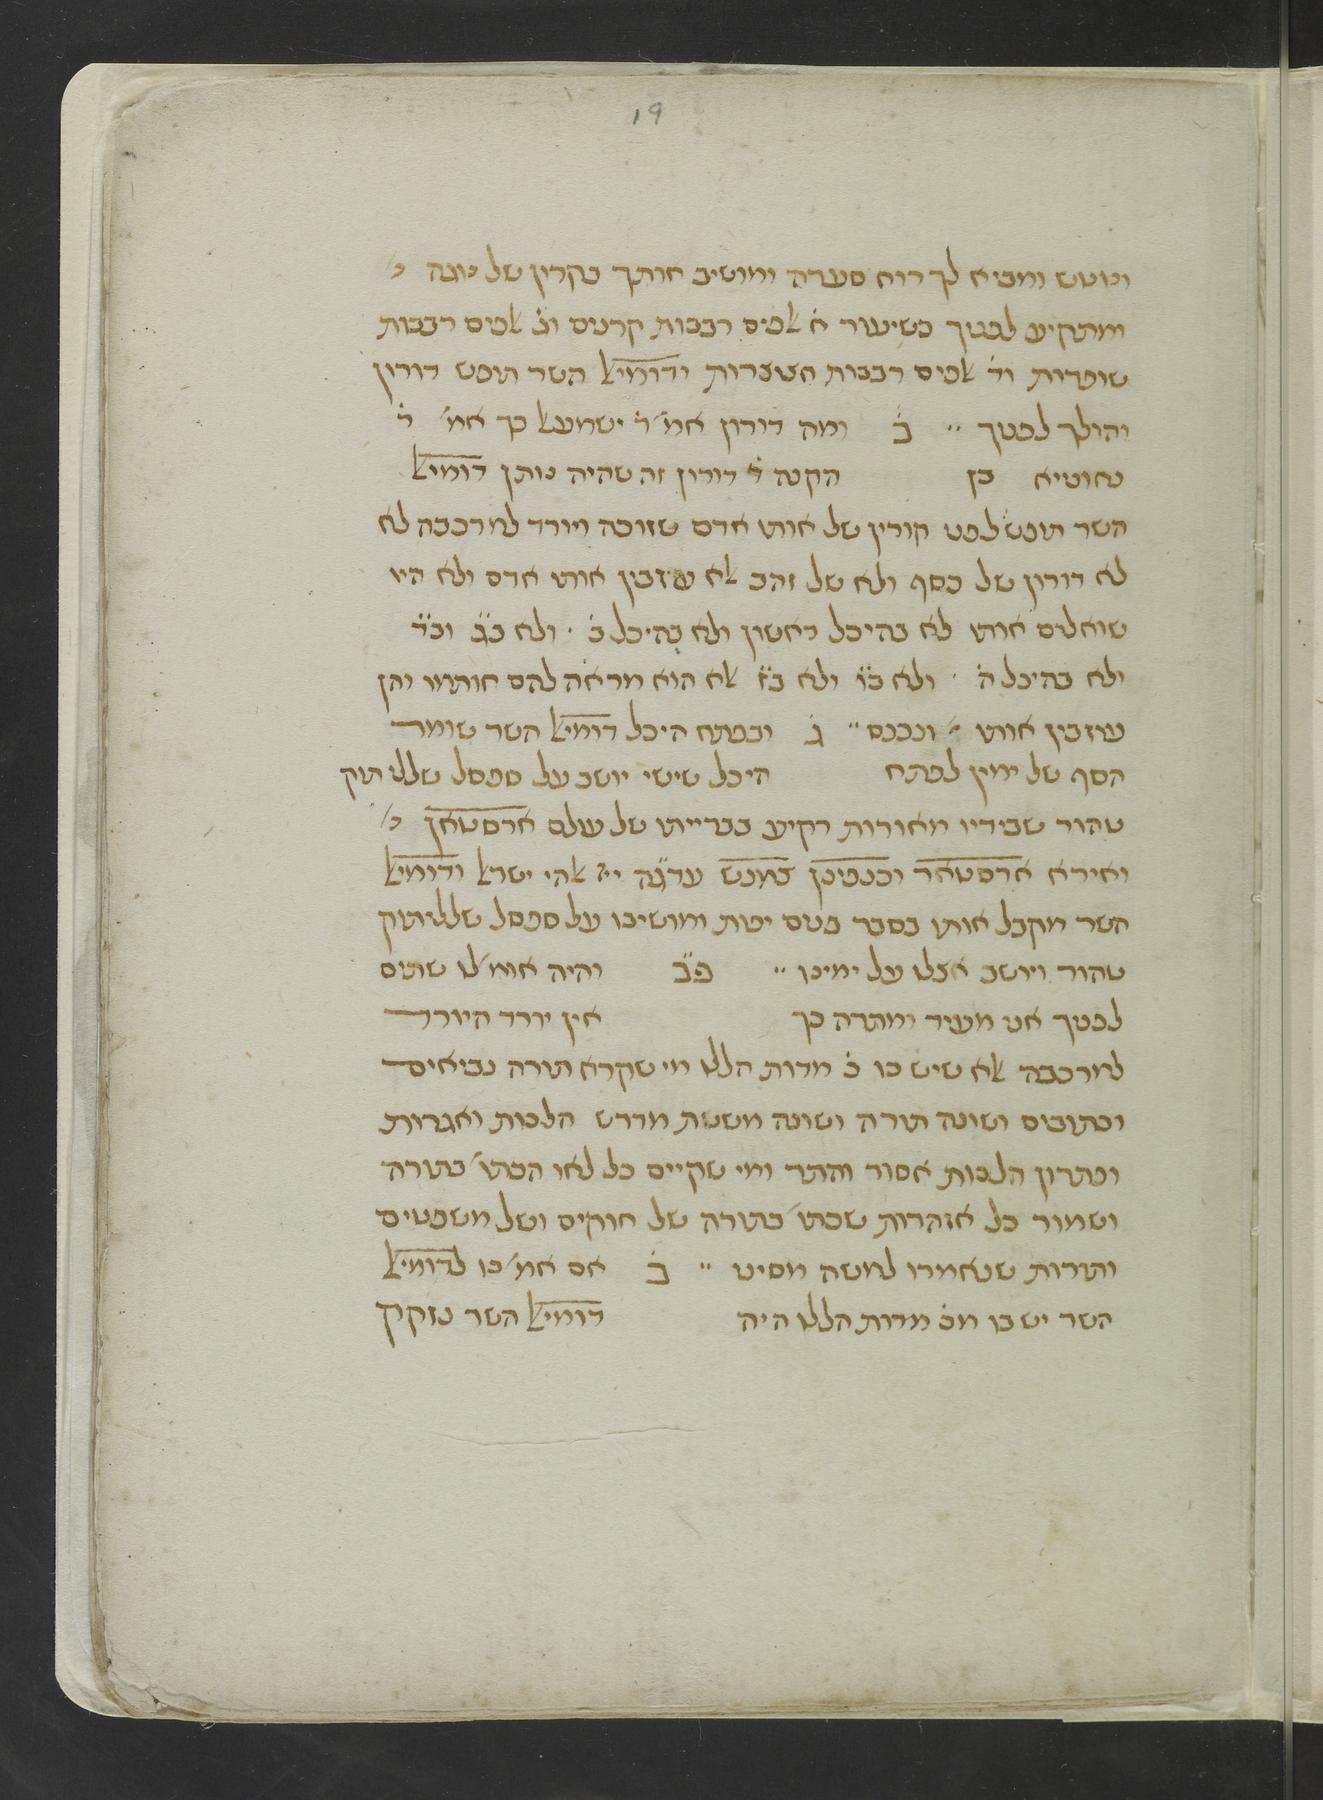 19
ונוטש ומביא לך רוח סערה ומושיב אותך בקרון של נוגה
ומתקיע לפניך כשיעור ח אלפים רבבות קרנים וג אלפים רבבות
שופרות וד אלפים רבבות חצוצרות ודומיאל השר תופש דורון
והולך לפניך ״ ב ומה דורון אמ׳ ר׳ ישמעאל כך אמ׳ ר׳
נחוניא בן הקנה ר דורון זה שהיה נותן דומיאל
השר תופש לפני קורין של אותו אדם שזוכה ויורד למרכבה לא
לא דורון של כסף ולא של זהב אלא עוזבין אותו אדם ולא היו
שואלים אותו לא בהיכל ראשון ולא בהיכל ב ולא בג׳ ובד׳
ולא בהיכל ה ולא בו׳ ולא בז׳ אלא הוא מראה להם חותמו והן
עוזבין אותו ונכנס ״ ג ובפתח היכל דומיאל השר שומר
הסף של ימין לפתח היכל שישי יושב על ספסל שללו תוק
טהור שבידיו מאורות רקיע בברייתו של עולם ארסטאן
ואירא ארסטאר וכנפינן צמנש ערגה ייי אלהי ישראל ודומיאל
השר מקבל אותו בסבר פנים יפות ומושיבו על ספסל שללו תוק
טהור ויושב אצלו על ימינו ״ פ״ב והיה אומ׳ לו שתים
לפניך אני מעיד ומתרה כך אין יורד היורד
למרכבה אלא שיש בו ב מדות הללו מי שקרא תורה נביאים
וכתובים ושונה תורה ושונה משנת מדרש הלכות ואגדות
ופתרון הלכות אסור והתר ומי שקיים כל לאו הכתו׳ בתורה
ושמור כל אזהרות שכתו׳ בתורה של חוקים ושל משפטים
ותורות שנאמרו למשה מסיני ״ ב אם אמ׳ בו לדומיאל
השר יש בו מב מדות הללו היה דומיאל השר נזקק